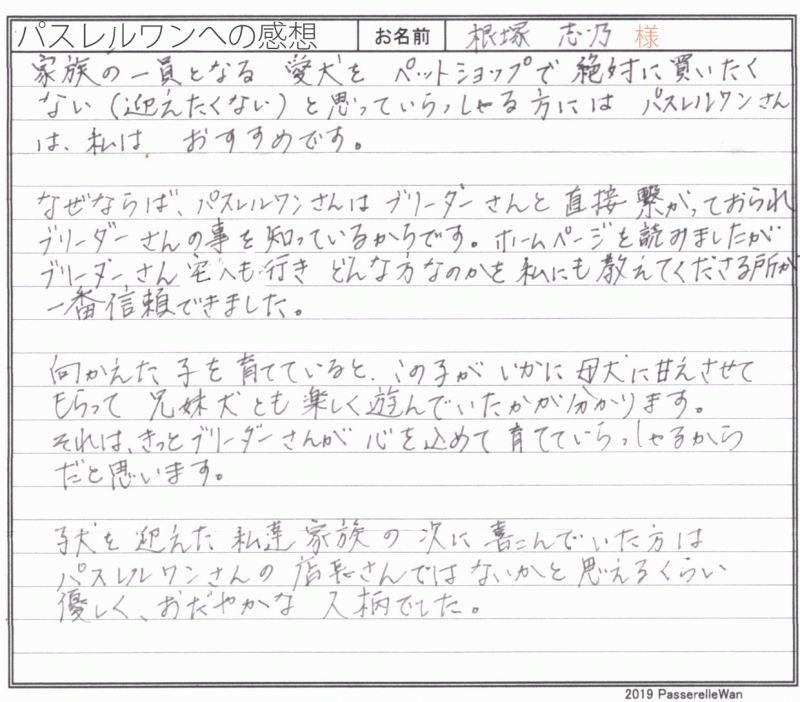 パスレルワンへの感想 お名前 根塚 志乃 様
家族の一員となる 愛犬を ペットショップで 絶対に買いたく
ない(迎えたくない)と思っていらっしゃる方には パスレルワンさん
は、私は おすすめです。
なぜならば、パスレルワンさんは ブリーダーさんと 直接 繋がっておられ
ブリーダーさんの事を知っているからです。ホームページを読みましたが
ブリーダーさん宅へも行き どんな方なのかを私にも教えてくださる所が
一番信頼できました。
向かえた子を育てていると、この子が いかに 母犬に甘えさせて
もらって 兄妹犬とも 楽しく遊んでいたかが分かります。
それは、きっとブリーダーさんが 心を込めて育てていらっしゃるから
だと思います。
子犬を迎えた 私達家族の次に喜こんでいた方は
パスレルワンさんの 店長さんではないかと思えるくらい
優しく、おだやかな 人柄でした。
2019 PasserelleWan